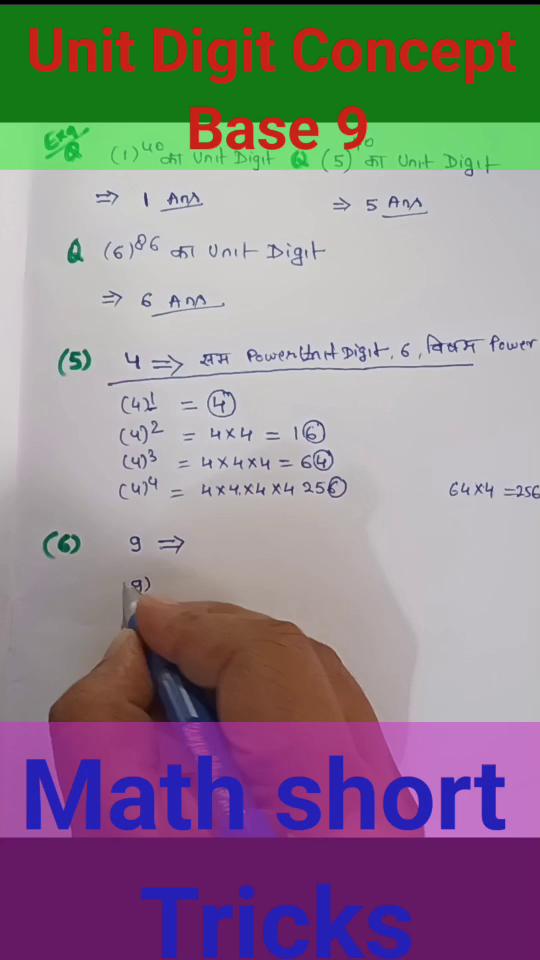 Unit Digit Concept
Base 9
Exa/Q (1)^40 का Unit Digit Q (5)^40 का Unit Digit
⇒ 1 Ans ⇒ 5 Ans
Q (6)^86 का Unit Digit
⇒ 6 Ans
(5) 4 ⇒ सम Power Unit Digit, 6, विषम Power
(4)^1 = 4
(4)^2 = 4×4 = 16
(4)^3 = 4×4×4 = 64
(4)^4 = 4×4×4×4 256 64×4 = 256
(6) 9 ⇒
9)
Math short
Tricks